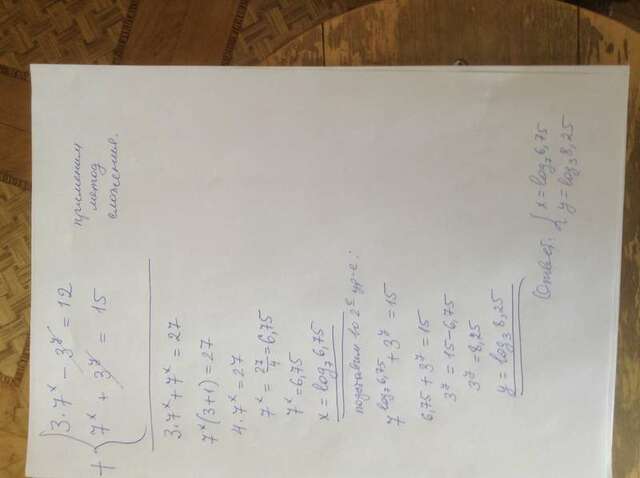 3·7ˣ − 3ʸ = 12
+ 7ˣ + 3ʸ = 15
применим
метод
сложения.
3·7ˣ + 7ˣ = 27
7ˣ(3+1) = 27
4·7ˣ = 27
7ˣ = 27/4 = 6,75
7ˣ = 6,75
x = log₇ 6,75
подставим во 2ᵉ ур-е:
7^(log₇ 6,75) + 3ʸ = 15
6,75 + 3ʸ = 15
3ʸ = 15 − 6,75
3ʸ = 8,25
y = log₃ 8,25
Ответ: { x = log₇ 6,75
y = log₃ 8,25